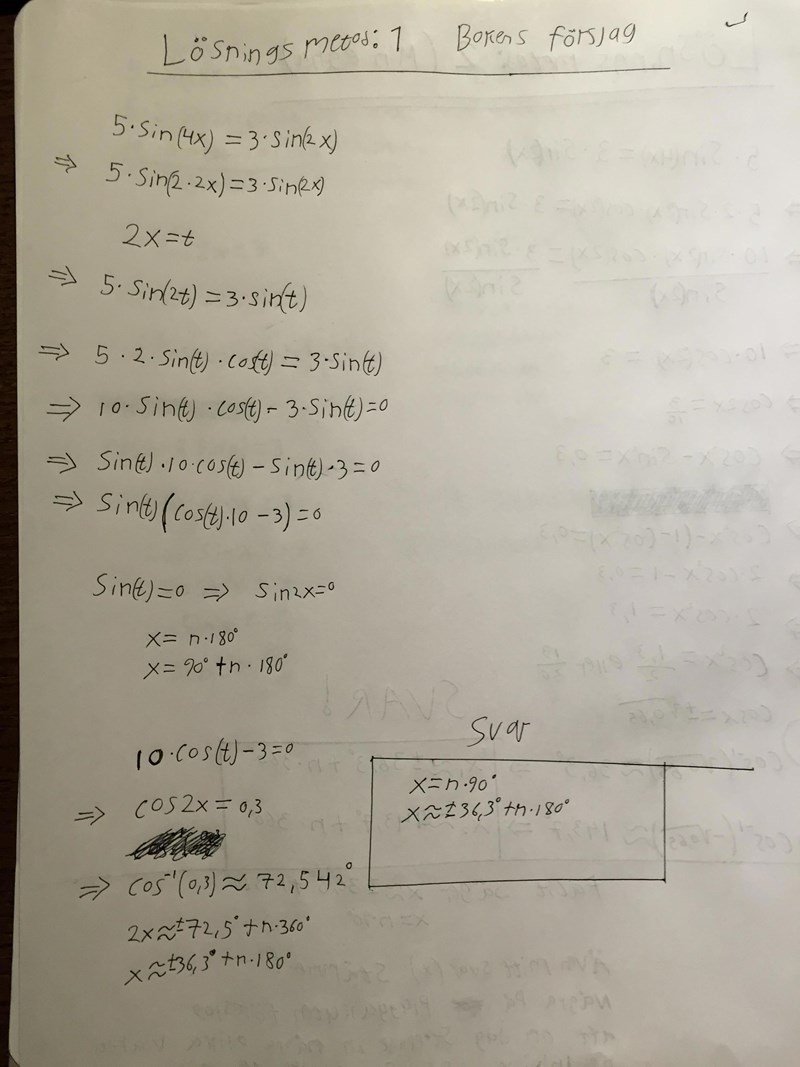 Lösnings metod: 1 Bokens förslag
5·sin(4x) = 3·sin(2x)
⇒ 5·sin(2·2x) = 3·sin(2x)
2x = t
⇒ 5·sin(2t) = 3·sin(t)
⇒ 5·2·sin(t)·cos(t) = 3·sin(t)
⇒ 10·sin(t)·cos(t) - 3·sin(t) = 0
⇒ sin(t)·10·cos(t) - sin(t)·3 = 0
⇒ sin(t)(cos(t)·10 - 3) = 0
sin(t) = 0 ⇒ sin2x = 0
x = n·180°
x = 90° + n·180°
10·cos(t) - 3 = 0
⇒ cos2x = 0,3
⇒ cos⁻¹(0,3) ≈ 72,542°
2x ≈ ±72,5° + n·360°
x ≈ ±36,3° + n·180°
Svar
x = n·90°
x ≈ ±36,3° + n·180°